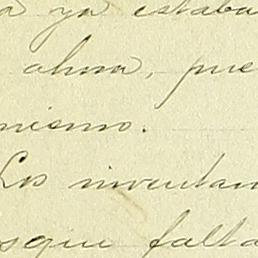 a ya estaba
ahora, pue
mismo.
Los inventar
sque falta